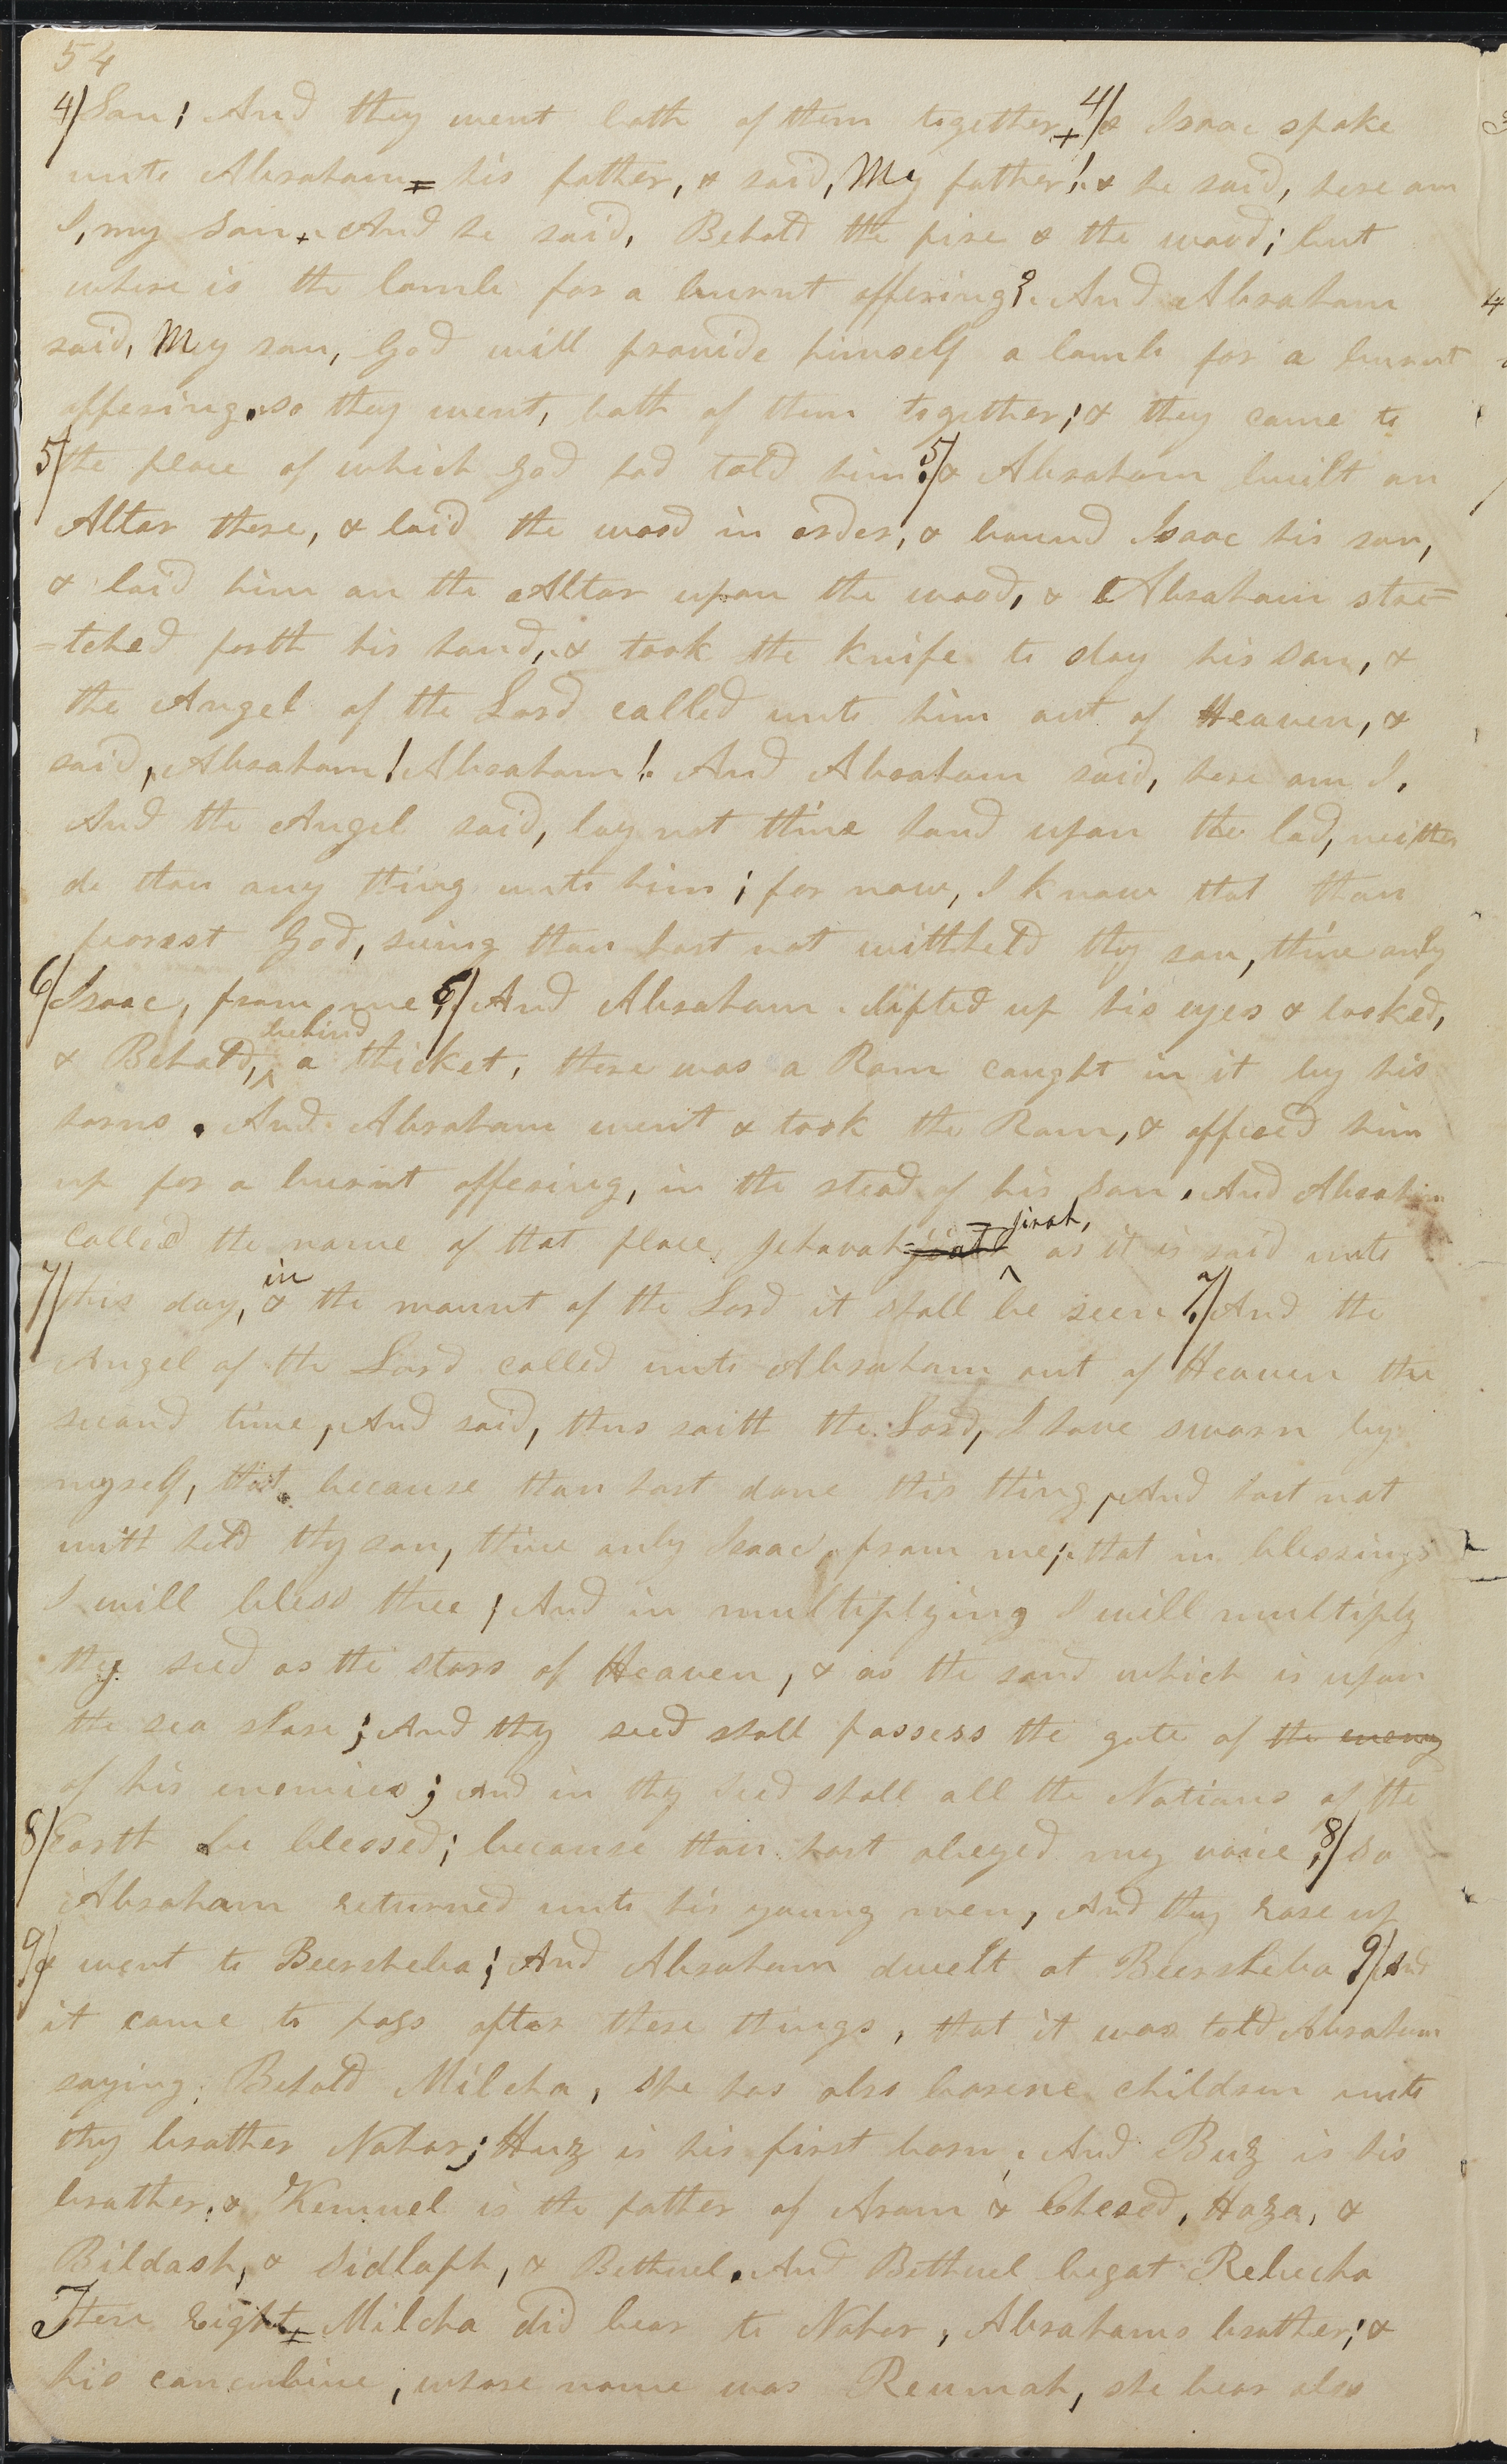 54
4/ Son; And they went both of them together + 4/ & Isaac spoke
unto Abraham = his father, & said, My father! & he said, here am
I, my son + And he said, Behold the fire & the wood; but
where is the lamb for a burnt offering? And Abraham
said, My son, God will provide himself a lamb for a burnt
offering. so they went, both of them together; & they came to
5/ the place of which God had told him. 5/ & Abraham built an
Altar there, & laid the wood in order, & bound Isaac his son,
& laid him on the Altar upon the wood, & Abraham stre=
=tched forth his hand, & took the knife to slay his son, &
the Angel of the Lord called unto him out of Heaven, &
said, Abraham! Abraham! And Abraham said, here am I,
And the Angel said, lay not thine hand upon the lad, neither
do thou any thing unto him; for now, I know that thou
fearest God, seeing thou hast not withheld thy son, thine only
6/ Isaac, from me; 6/ And Abraham lifted up his eyes & looked,
& Behold, behind a thicket, there was a Ram caught in it by his
horns. And Abraham went & took the Ram, & offered him
up for a burnt offering, in the stead of his son. And Abraham
called the name of that place, Jehovah=jirah, as it is said unto
7/ this day, in the mount of the Lord it shall be seen. 7/ And the
Angel of the Lord called unto Abraham out of Heaven the
second time, And said, thus saith the Lord, I have sworn by
myself, that because thou hast done this thing, And hast not
with held thy son, thine only Isaac, from me; that in blessings
I will bless thee; And in multiplying I will multiply
thy seed as the stars of Heaven, & as the sand which is upon
the sea shore; And thy seed shall possess the gate of the enemy
of his enemies; and in thy seed shall all the Nations of the
8/ Earth be blessed; because thou hast obeyed my voice; 8/ So
Abraham returned unto his young men, And they rose up
9/ & went to Beersheba; And Abraham dwelt at Beersheba 9/ And
it came to pass after these things, that it was told Abraham
saying, Behold Milcha, she has also borene children unto
thy brother Nahor; Huz is his first born, And Buz is his
brother, & Kemuel is the father of Aram & Chesed, Haza, &
Bildash, & Jidlaph, & Bethuel. And Bethuel begat Rebecha
These Eight = Milcha did bear to Nahor, Abrahams brother; &
his concubine, whose name was Reumah, she bear also